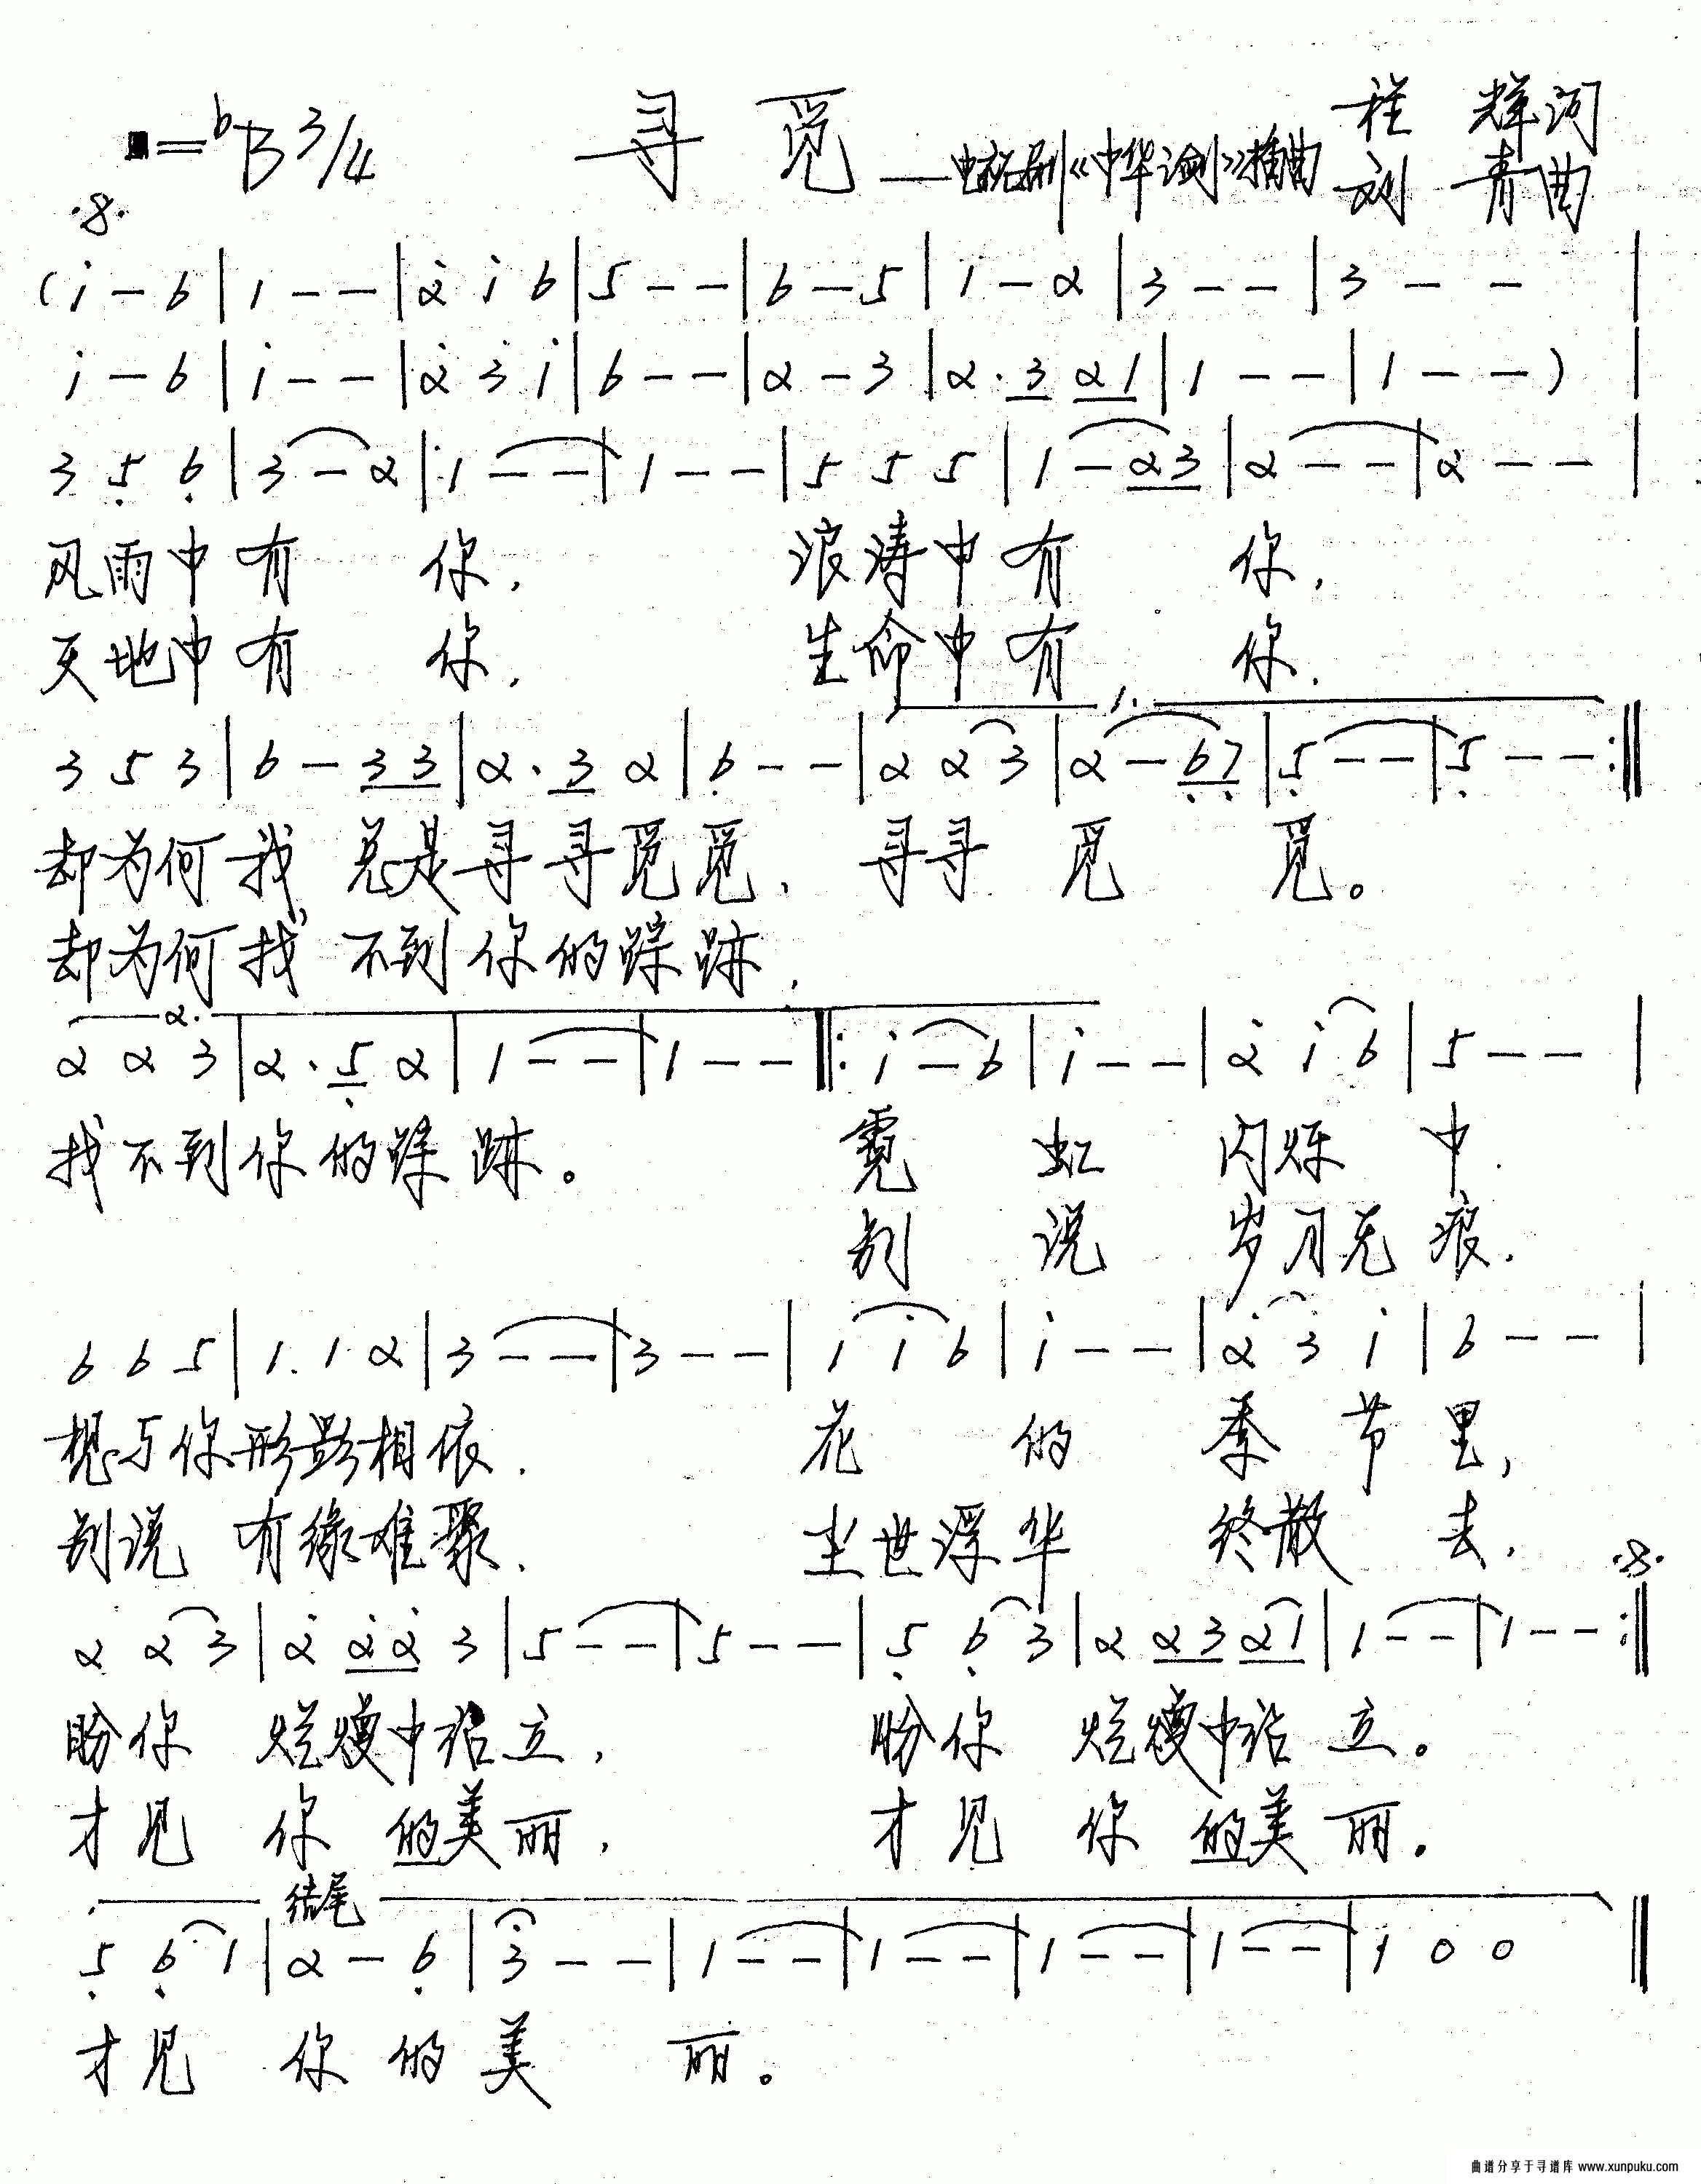 =♭B 3/4 寻 觅 ——电视剧《中华论剑》插曲 程 辉词
刘 青曲
·8·
(i̇ – 6 | 1 – – | 2̇ i̇ 6 | 5 – – | 6 – 5 | 1 – 2 | 3 – – | 3 – – |
i̇ – 6 | i̇ – – | 2̇ 3̇ i̇ | 6 – – | 2 – 3 | 2 · 3 2 1 | 1 – – | 1 – – ) |
3 5̣ 6̣ | 3 – 2 | 1 – – | 1 – – | 5 5 5 | 1 – 2 3 | 2 – – | 2 – – |
风雨中有 你, 浪涛中有 你,
天地中有 你, 生命中有 你.
1.
3 5 3 | 6 – 3 3 | 2 · 3 2 | 6̣ – – | 2 2 3 | 2 – 6̣ 7̣ | 5̣ – – | 5̣ – – :||
却为何我 总是寻寻觅觅, 寻寻 觅 觅。
却为何找 不到你的踪迹,
2.
2 2 3 | 2 · 5̣ 2 | 1 – – | 1 – – ||: i̇ – 6 | i̇ – – | 2̇ i̇ 6 | 5 – – |
找不到你的踪迹。 霓 虹 闪烁 中.
别 说 岁月无痕.
6 6 5 | 1 . 1 2 | 3 – – | 3 – – | i̇ i̇ 6 | i̇ – – | 2̇ 3̇ i̇ | 6 – – |
想与你形影相依. 花 的 季 节 里,
别说 有缘难聚. 尘世浮华 终散 去,
·8·
2 2 3 | 2̇ 2̇ 2̇ 3 | 5 – – | 5 – – | 5̣ 6̣ 3 | 2 2 3 2 1 | 1 – – | 1 – – :||
盼你 烂熳中站立, 盼你 烂熳中站立。
才见 你 的美丽, 才见 你 的美丽。
结尾
5̣ 6̣ 1 | 2 – 6̣ | 3 – – | 1 – – | 1 – – | 1 – – | 1 – – | 1 0 0 ||
才见 你的美 丽。
曲谱分享于寻谱库 www.xunpuku.com